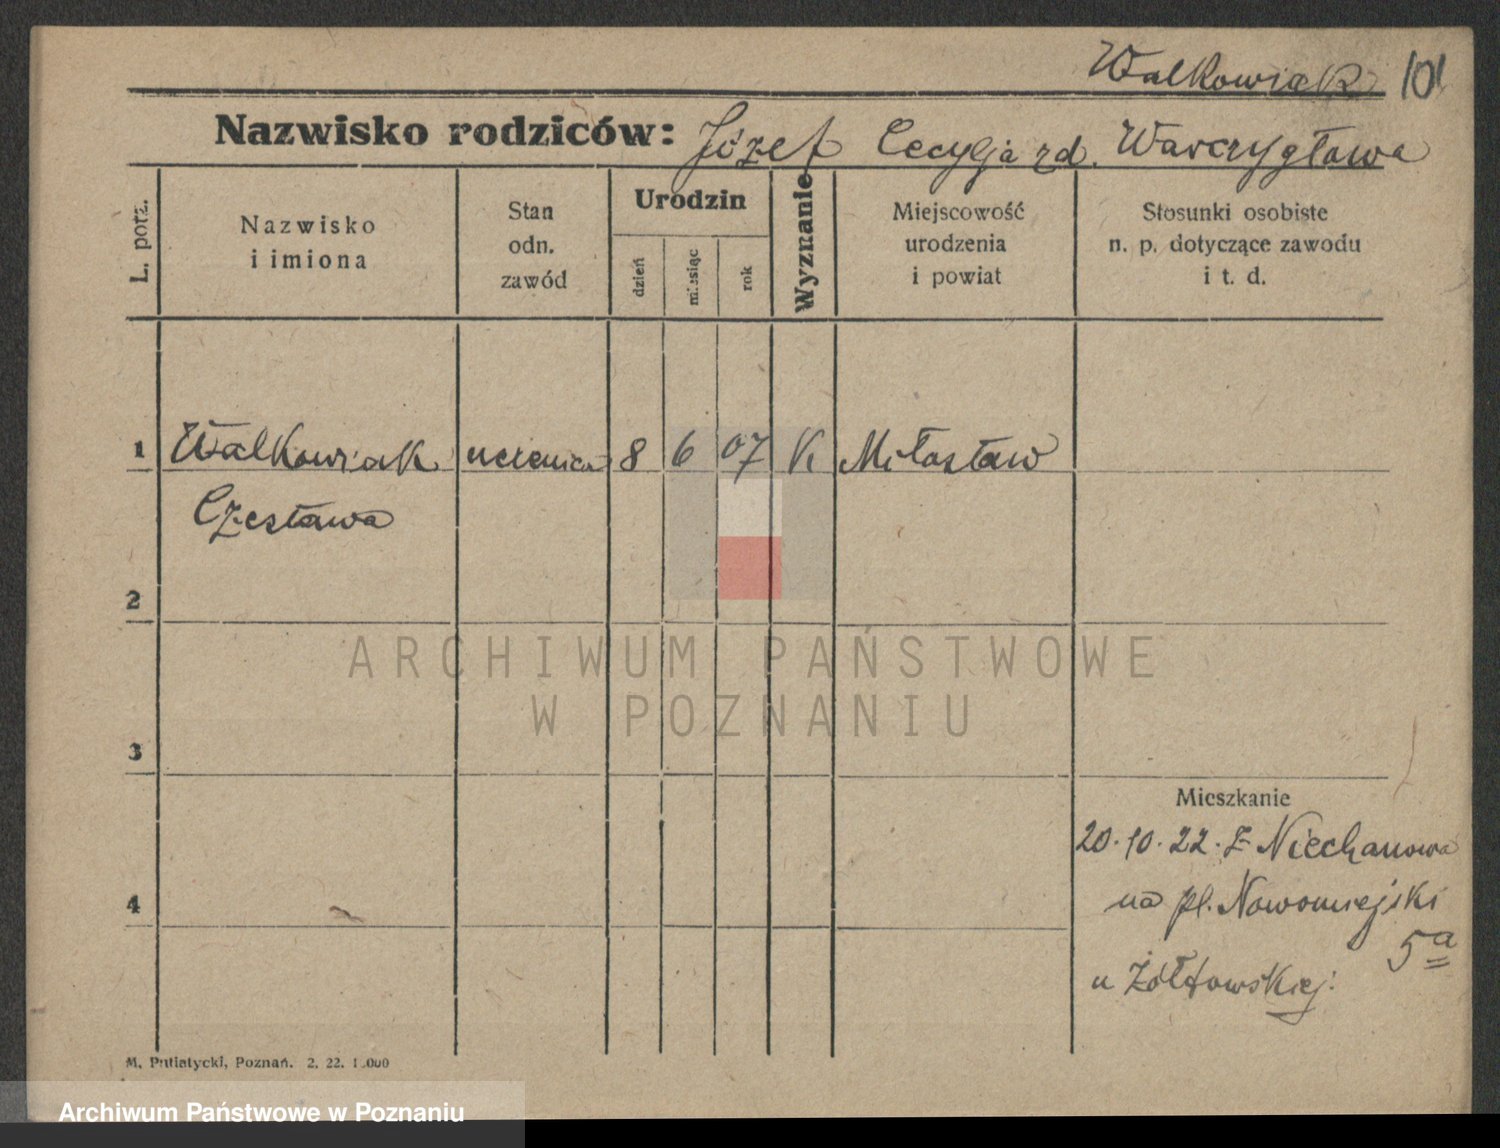 Walkowiak 101
Nazwisko rodziców: Józef Cecylja zd. Warczygłowa
L. porz.
Nazwisko
i imiona
Stan
odn.
zawód
Urodzin
dzień
miesiąc
rok
Wyznanie
Miejscowość
urodzenia
i powiat
Stosunki osobiste
n. p. dotyczące zawodu
i t. d.
1 Walkowiak uczenica 8 6 07 K Miłosław
Czesława
2
ARCHIWUM PAŃSTWOWE
W POZNANIU
3
Mieszkanie
20.10.22. z Niechanowa
4 na pl. Nowomiejski
5a
u Żółtowskiej.
M. Putiatycki, Poznań. 2. 22. 1.000
Archiwum Państwowe w Poznaniu